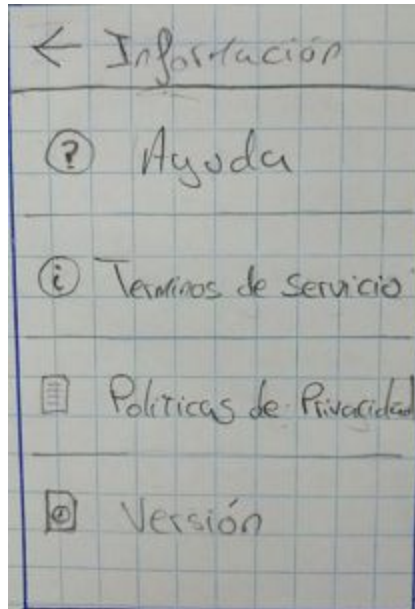 ← Información
? Ayuda
i Terminos de Servicio
Politicas de Privacidad
Versión